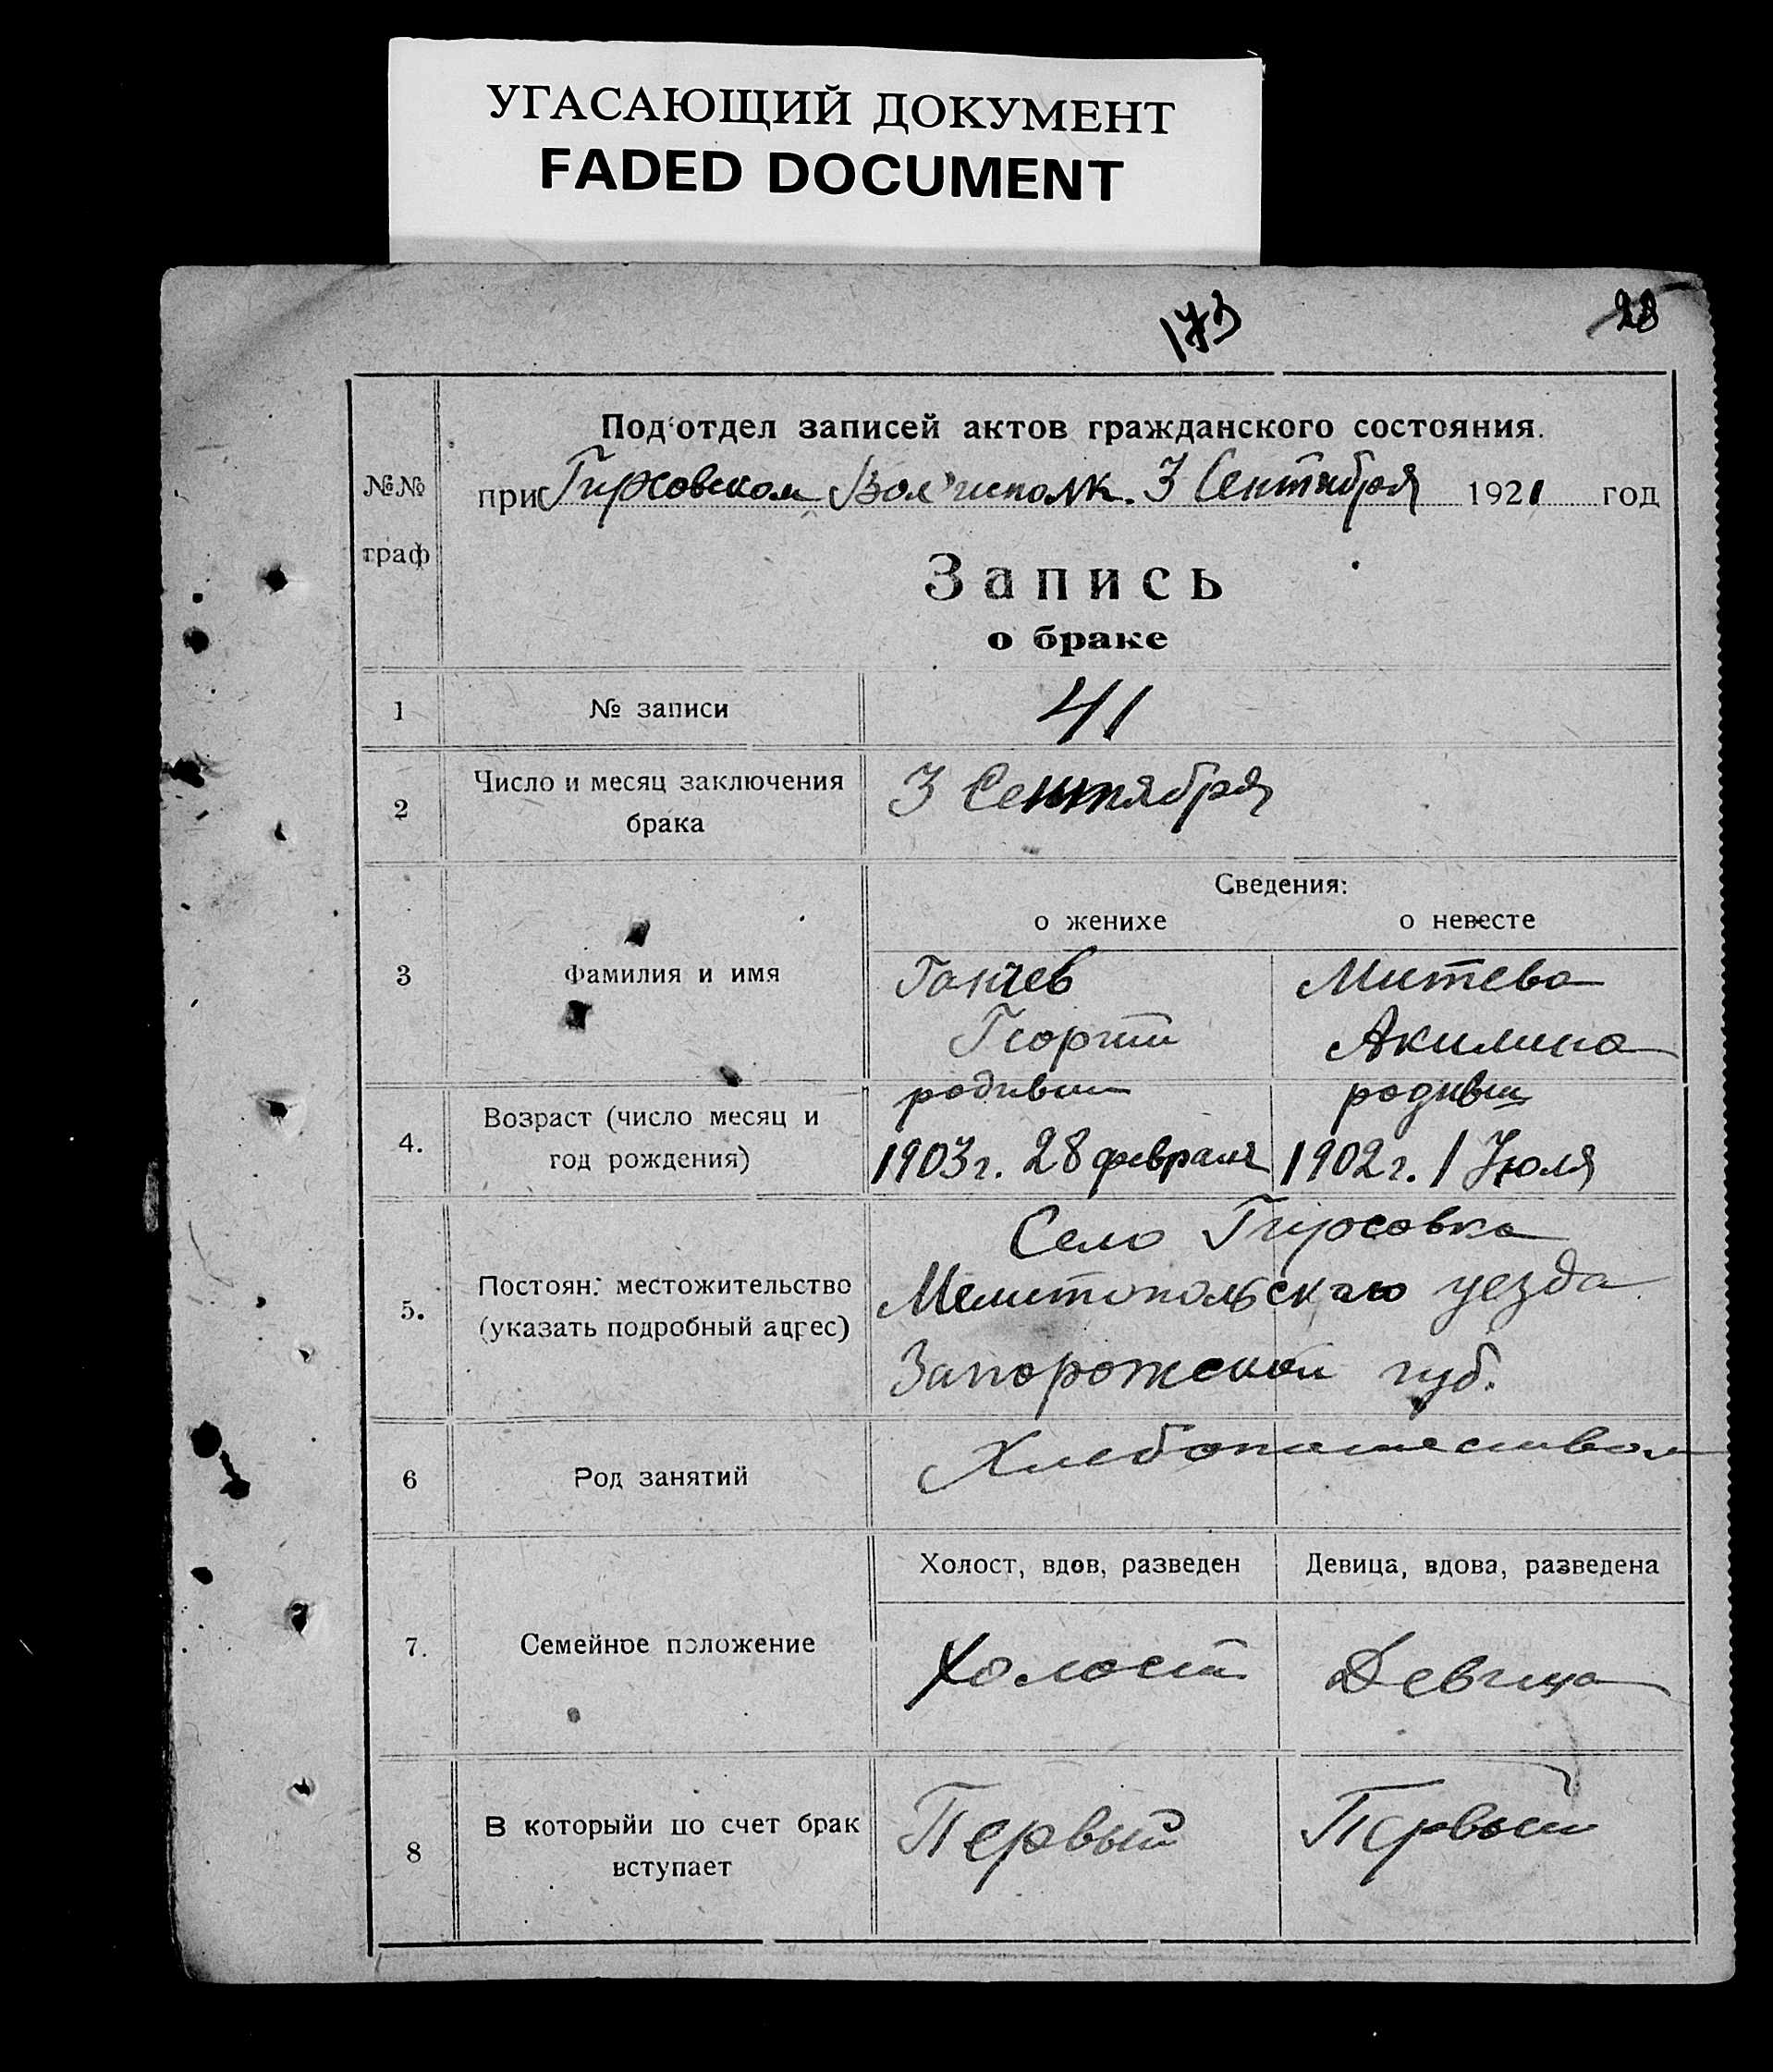 УГАСАЮЩИЙ ДОКУМЕНТ
FADED DOCUMENT
173
28
№№ граф
Под'отдел записей актов гражданского состояния.
при Гирсовском Вол'исполк. 3 Сентября 1921 год
Запись
о браке
1 № записи 41
2 Число и месяц заключения
брака
3 Сентября
Сведения:
о женихе о невесте
3 Фамилия и имя
Ганчев Митева
Георгий Акилина
4. Возраст (число месяц и
год рождения)
родивш родивш
1903г. 28 февраля 1902г. 1 Июля
5. Постоян: местожительство
(указать подробный адрес)
Село Гирсовка
Мелитопольскаго уезда
Запорожской губ.
6 Род занятий
Хлебопашеством
7. Семейное положение
Холост, вдов, разведен Девица, вдова, разведена
Холост Девица
8 В которыйи по счет брак
вступает
Первый Первый